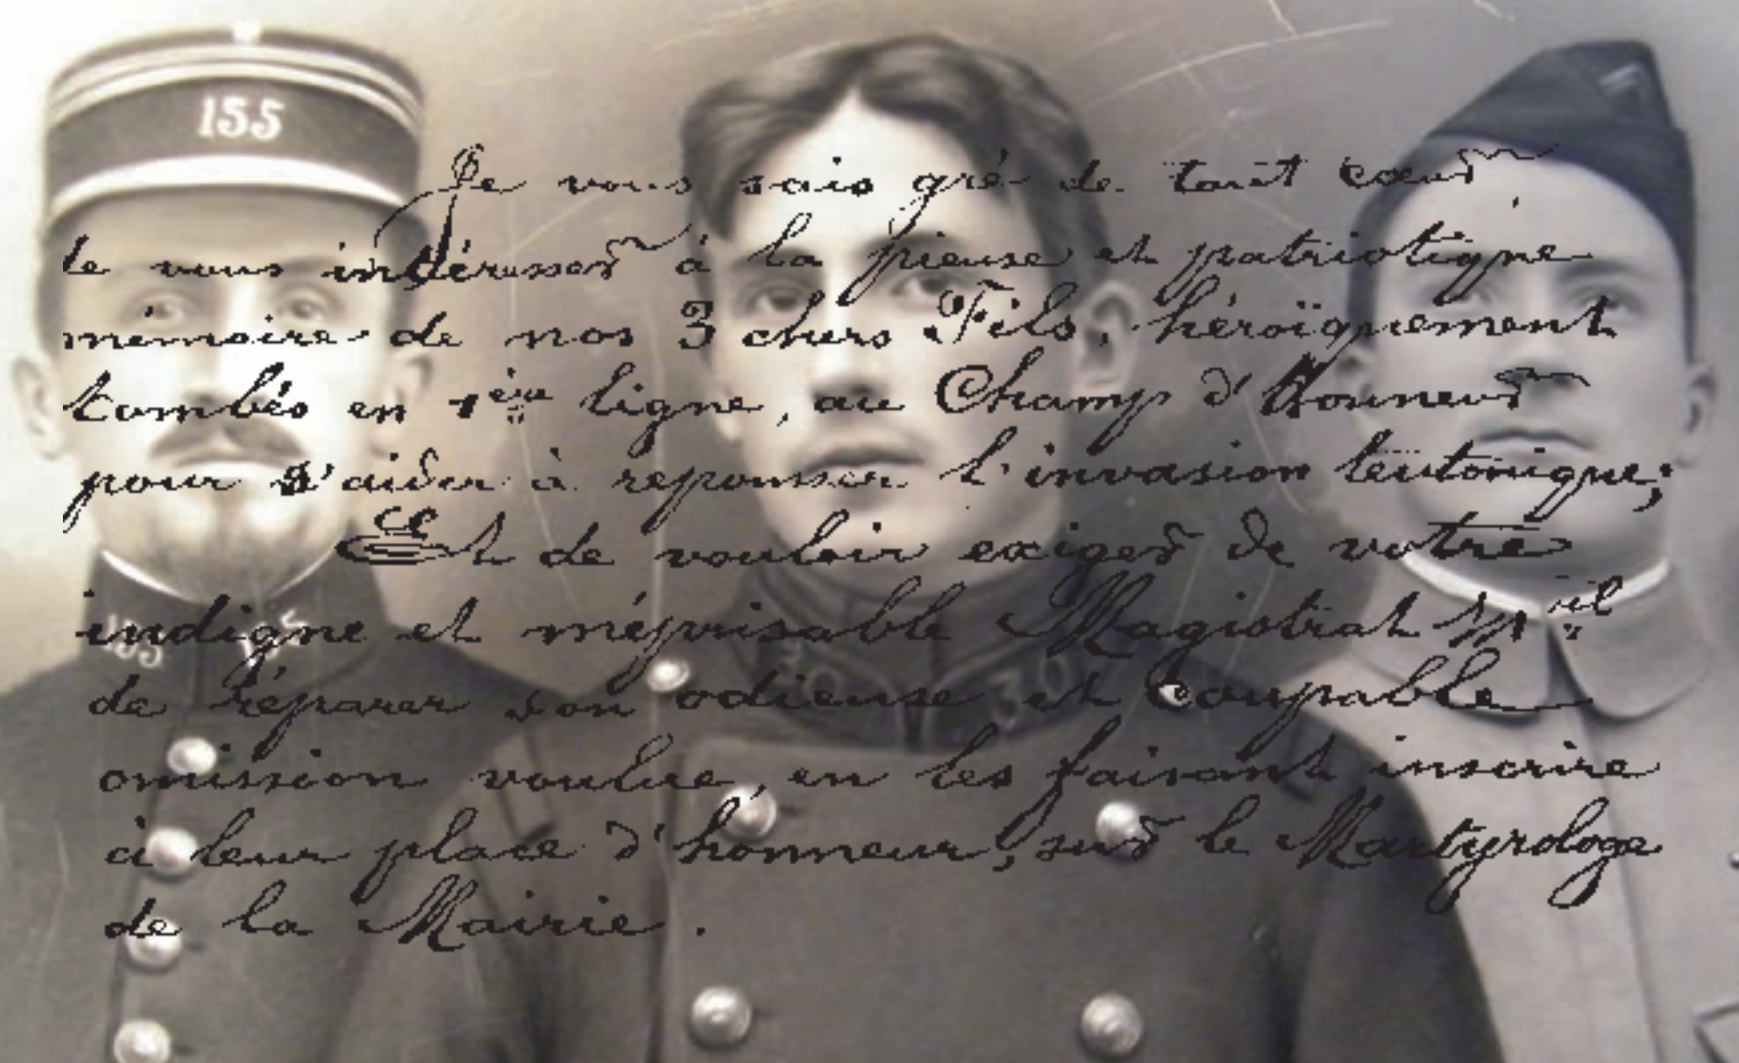 155
Je vous sais gré de tout cœur
de vous intéresser à la pieuse et patriotique
mémoire de nos 3 chers Fils, héroïquement
tombés en 1ère ligne, au Champ d'Honneur
pour s'aider à repousser l'invasion teutonique;
Et de vouloir exiger de votre
indigne et méprisable Magistrat Mal
155
de réparer son odieuse et coupable
30 30
omission voulue, en les faisant inscrire
à leur place d'honneur, sur le Martyrologe
de la Mairie.